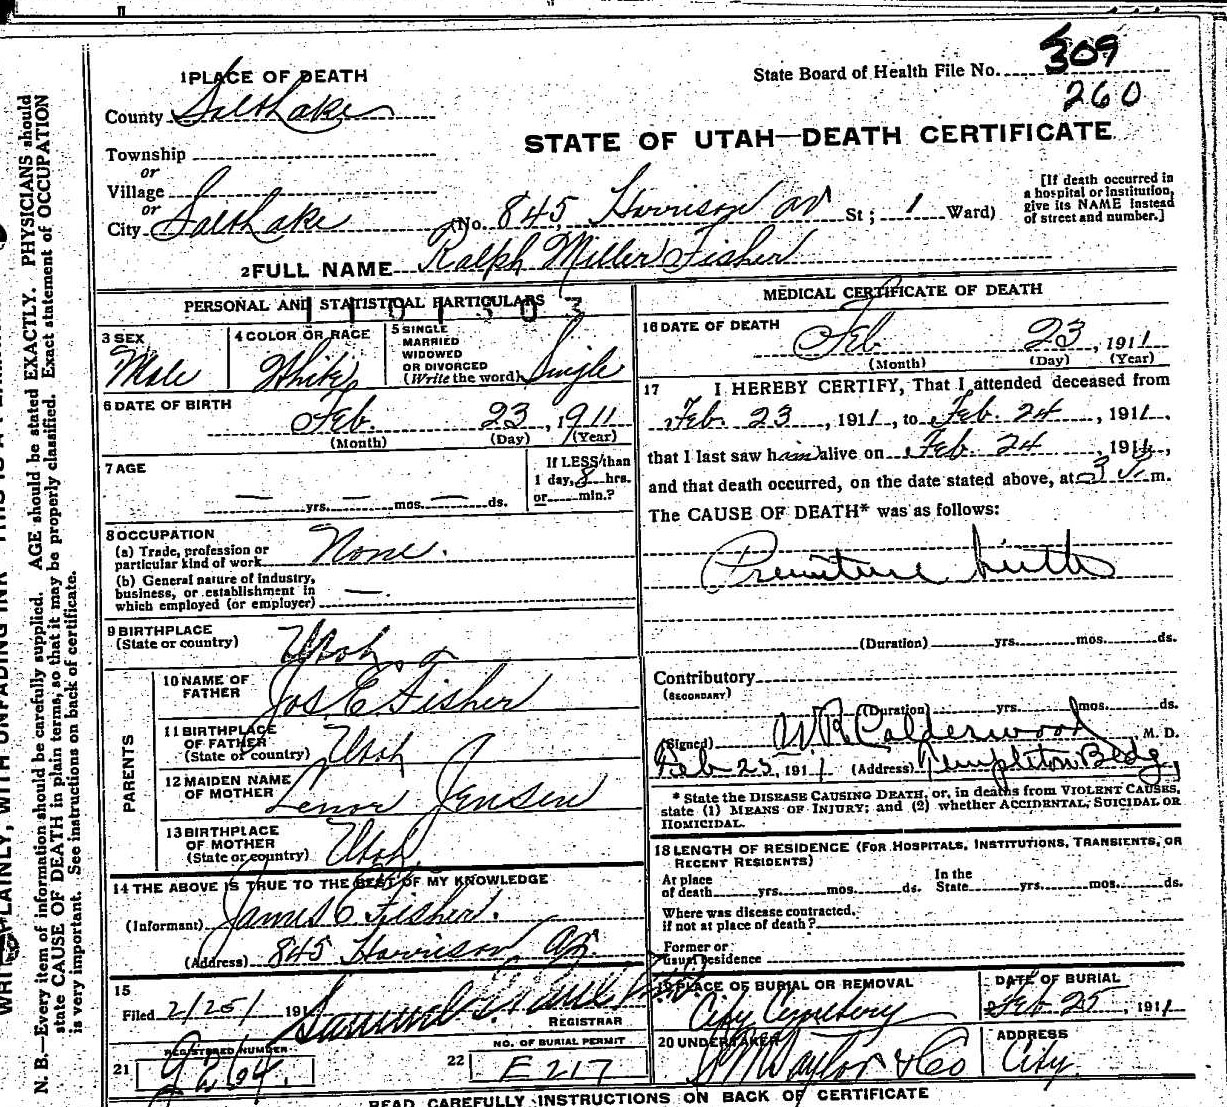 1 PLACE OF DEATH
County Salt Lake
Township
or
Village
or
City Salt Lake
State Board of Health File No. 309
260
STATE OF UTAH—DEATH CERTIFICATE
(No. 845 Harrison av St; 1 Ward)
[If death occurred in
a hospital or institution,
give its NAME instead
of street and number.]
2 FULL NAME Ralph Miller Fisher
PERSONAL AND STATISTICAL PARTICULARS
3 SEX
Male
4 COLOR OR RACE
White
5 SINGLE
MARRIED
WIDOWED
OR DIVORCED
(Write the word) Single
6 DATE OF BIRTH
Feb. 23, 1911
(Month) (Day) (Year)
7 AGE
— yrs. — mos. — ds.
If LESS than
1 day, 8 hrs.
or min.?
8 OCCUPATION
(a) Trade, profession or
particular kind of work None.
(b) General nature of industry,
business, or establishment in
which employed (or employer) —
9 BIRTHPLACE
(State or country) Utah
PARENTS
10 NAME OF
FATHER Jos E. Fisher
11 BIRTHPLACE
OF FATHER
(State or country) Utah
12 MAIDEN NAME
OF MOTHER Lenor Jensen
13 BIRTHPLACE
OF MOTHER
(State or country) Utah
14 THE ABOVE IS TRUE TO THE BEST OF MY KNOWLEDGE
(Informant) James E Fisher.
(Address) 845 Harrison av.
15
Filed 2/25/ 191
REGISTRAR
21 REGISTERED NUMBER
22 NO. OF BURIAL PERMIT
E 217
MEDICAL CERTIFICATE OF DEATH
16 DATE OF DEATH
Feb 23, 1911
(Month) (Day) (Year)
17 I HEREBY CERTIFY, That I attended deceased from
Feb. 23, 1911, to Feb. 24, 1911,
that I last saw him alive on Feb. 24 1911,
and that death occurred, on the date stated above, at 3 m.
The CAUSE OF DEATH* was as follows:
Premature birth
(Duration) yrs. mos. ds.
Contributory
(SECONDARY)
(Duration) yrs. mos. ds.
(Signed) W.R. Calderwood M. D.
Feb 25, 1911 (Address) Templeton Bldg,
* State the DISEASE CAUSING DEATH, or, in deaths from VIOLENT CAUSES,
state (1) MEANS OF INJURY; and (2) whether ACCIDENTAL, SUICIDAL OR
HOMICIDAL.
18 LENGTH OF RESIDENCE (FOR HOSPITALS, INSTITUTIONS, TRANSIENTS, OR
RECENT RESIDENTS)
At place
of death yrs. mos. ds. In the
State yrs. mos. ds.
Where was disease contracted,
if not at place of death?
Former or
usual residence
19 PLACE OF BURIAL OR REMOVAL
City Cemetery
DATE OF BURIAL
Feb 25, 1911
20 UNDERTAKER
S M Taylor & Co
ADDRESS
City.
READ CAREFULLY INSTRUCTIONS ON BACK OF CERTIFICATE
N. B.—Every item of information should be carefully supplied. AGE should be stated EXACTLY. PHYSICIANS should
state CAUSE OF DEATH in plain terms, so that it may be properly classified. Exact statement of OCCUPATION
is very important. See instructions on back of certificate.